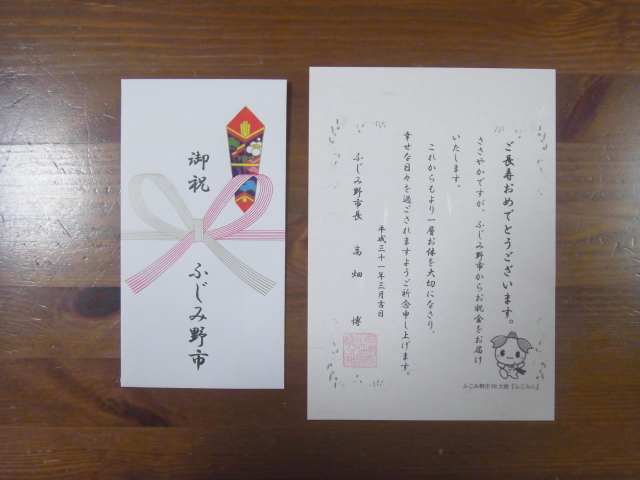 御祝
ふじみ野市
ご長寿おめでとうございます。
ささやかですが、ふじみ野市からお祝金をお届け
いたします。
これからもより一層お体を大切になさり、
幸せな日々を過ごされますようご祈念申し上げます。
平成三十一年三月吉日
ふじみ野市長 高畑 博
ふじみ野市PR大使『ふじみん』